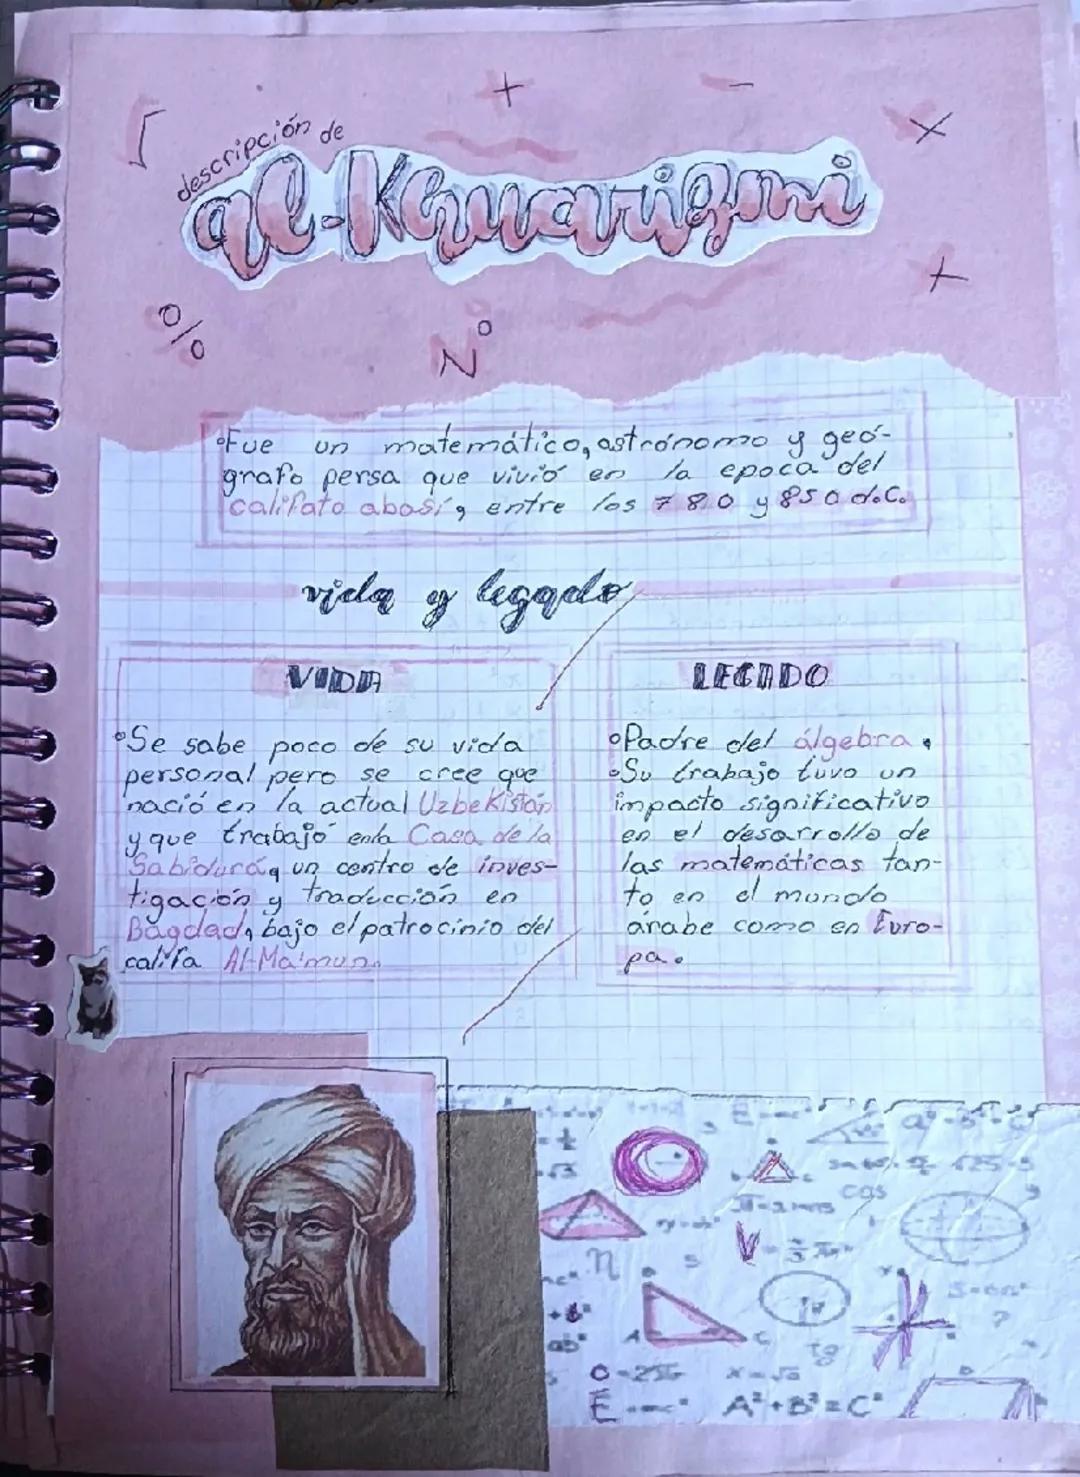 descripción de
al-Khuarizmi
N°
%
°Fue un matemático, astrónomo y geó-
grafo persa que vivió en la epoca del
califato abasí, entre los 780 y 850 d.C.
vida y legado
VIDA
°Se sabe poco de su vida
personal pero se cree que
nació en la actual Uzbekistán
y que trabajó en la Casa de la
Sabidurá, un centro de inves-
tigación y traducción en
Bagdad, bajo el patrocinio del
califa Al-Ma'mun.
LEGADO
°Padre del álgebra.
°Su trabajo tuvo un
impacto significativo
en el desarrollo de
las matemáticas tan-
to en el mundo
árabe como en Euro-
pa.
cos
n
V
tg
A C
A²+B²=C²